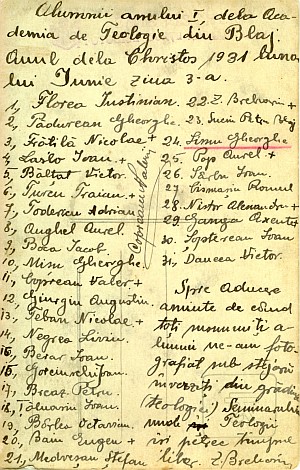 Alumnii anului I, dela Aca-
demia de Teologie din Blaj.
Anul dela Christos 1931 luna
lui Iunie ziua 3-a.
1, Florea Iustinian.
2, Pădurean Gheorghe
3, Frățilă Nicolae +
4, Laslo Ioan. +
5, Băltat Victor.
6, Turcu Traian. +
7, Todoran Adrian
8, Anghel Aurel.
9, Boca Iacob.
10, Mișu Gheorghe
11, Cyprean Valer +
12, Giurgiu Augustin.
13, Șerban Nicolae +
14, Negrea Liviu.
15, Besar Ioan.
16, Ioan.
17, Breaz Petru.
18, Ioan
19, Bârlea Octavian
20, Ban Eugen +
21, Medreșan Ștefan
Cyprianu Valeriu
22. Z. Brehoriu +
23. Suciu Petru Blaj
24. Simu Gheorghe
25. Pop Aurel +
26. Sârbu Ioan.
27. Cismariu Romul
28. Nistor Alexandru +
29. Ganea Axente
30. Ioan.
31, Dancea Victor.
Spre aducere
aminte de când
toți a-
lumnii ne-am foto-
grafiat sub stejarii
înverziți din grădina
(teologiei) Seminarului
unde Teologii
își petrec timpul
liber. Z. Brehoriu.